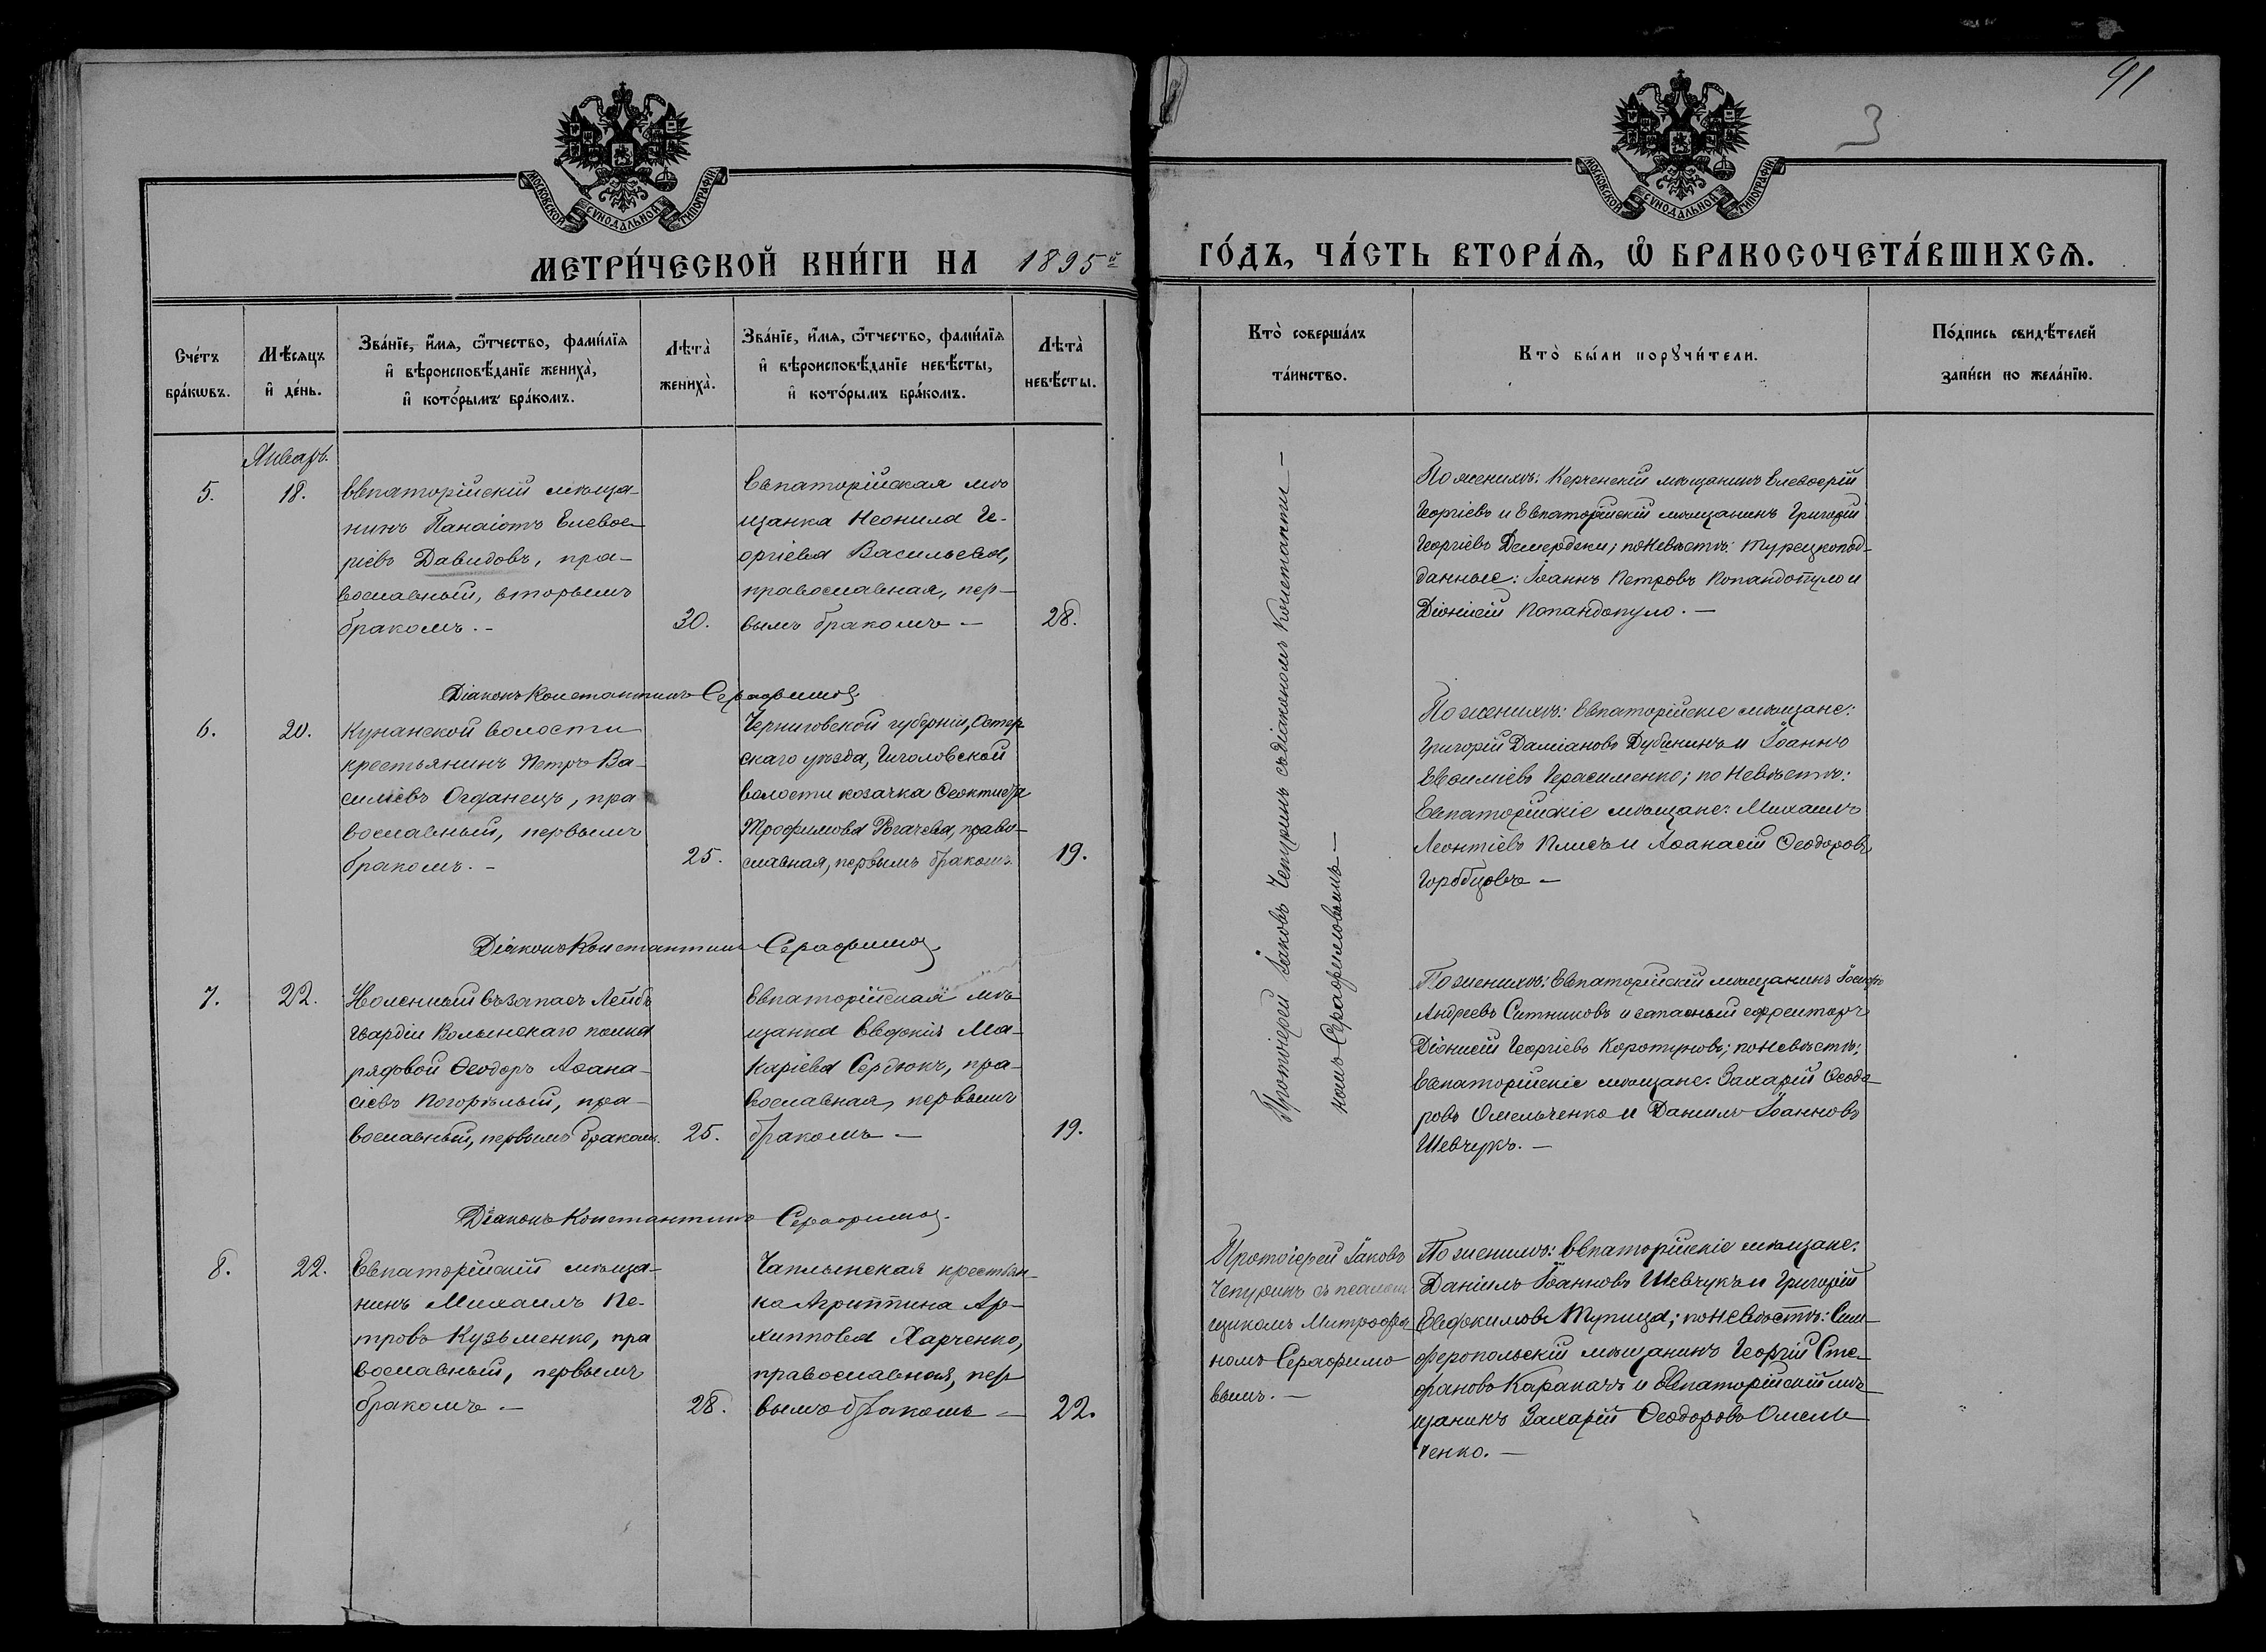 91
3
МОСКОВСКОЙ СѴНОДАЛЬНОЙ ТИПОГРАФІИ
МОСКОВСКОЙ СѴНОДАЛЬНОЙ ТИПОГРАФІИ
МЕТРИ́ЧЕСКОЙ КНИ́ГИ НА 1895й
ГО́ДЪ, ЧА́СТЬ ВТОРА́Ѧ, Ѽ БРАКОСОЧЕТА́ВШИХСѦ.
Сче́тъ бра́кѡвъ.
Мѣ́сѧцъ и҆ де́нь.
Зва́нїе, и҆́мѧ, ѻ҆́тчество, фами́лїѧ и҆ вѣроисповѣ́данїе жениха̀, и҆ кото́рымъ бра́комъ.
Лѣта̀ жениха̀.
Зва́нїе, и҆́мѧ, ѻ҆́тчество, фами́лїѧ и҆ вѣроисповѣ́данїе невѣ́сты, и҆ кото́рымъ бра́комъ.
Лѣта̀ невѣ́сты.
Кто̀ соверша́лъ та́инство.
Кто̀ бы́ли порꙋчи́тели.
По́дпись свидѣ́телей за́писи по жела́нїю.
Январь.
5.
18.
Евпаторійскій мѣща-
нинъ Панаіотъ Елевѳе-
ріевъ Давидовъ, пра-
вославный, вторымъ
бракомъ. -
30.
Евпаторійская мѣ
щанка Неонила Ге-
оргіева Васильева,
православная, пер-
вымъ бракомъ -
28.
Протоіерей Іаковъ Чепуринъ съ діакономъ Константи-
номъ Серафимовымъ -
По женихѣ: Керченскій мѣщанинъ Елевѳерій
Георгіевъ и Евпаторійскій мѣщанинъ Григорій
Георгіевъ Демерджи; по невѣстѣ: турецкопод-
данные: Іоаннъ Петровъ Попандопуло и
Діонисій Попандопуло. -
Діаконъ Константинъ Серафимовъ
6.
20.
Кунанской волости
крестьянинъ Петръ Ва-
силіевъ Огданецъ, пра
вославный, первымъ
бракомъ. -
25.
Черниговской губерніи, Остер
скаго уѣзда, Гоголовской
волости козачка Ѳеоктиста
Трофимова Рогачева, право-
славная, первымъ бракомъ.
19.
По женихѣ: Евпаторійскіе мѣщане:
Григорій Даміановъ Дубининъ и Іоаннъ
Евѳиміевъ Герасименко; по невѣстѣ:
Евпаторійскіе мѣщане: Михаилъ
Леонтіевъ Плисъ и Аѳанасій Ѳеодоровъ
Горобцовъ -
Діаконъ Константинъ Серафимовъ
7.
22.
Уволенный въ запасъ Лейбъ
Гвардіи Волынскаго полка
рядовой Ѳеодоръ Аѳана-
сіевъ Погорѣлый, пра-
вославный, первымъ бракомъ.
25.
Евпаторійская мѣ-
щанка Евфимія Ма-
каріева Сердюкъ, пра-
вославная, первымъ
бракомъ -
19.
По женихѣ: Евпаторійскій мѣщанинъ Іосифъ
Андреевъ Ситниковъ и запасный ефрейторъ
Діонисій Георгіевъ Коротуновъ; по невѣстѣ:
Евпаторійскіе мѣщане: Захарій Ѳеодо-
ровъ Омельченко и Даніилъ Іоанновъ
Шевчукъ. -
Діаконъ Константинъ Серафимовъ
8.
22.
Евпаторійскій мѣща-
нинъ Михаилъ Пе-
тровъ Кузьменко, пра
вославный, первымъ
бракомъ -
28.
Чаплынская крестьян-
ка Агриппина Ар-
хиппова Харченко,
православная, пер
вымъ бракомъ -
22.
Протоіерей Іаковъ
Чепуринъ съ псалом
щикомъ Митрофа-
номъ Серафимо
вымъ. -
По женихѣ: Евпаторійскіе мѣщане:
Даніилъ Іоанновъ Шевчукъ и Григорій
Евдокимовъ Тупица; по невѣстѣ: Сим-
феропольскій мѣщанинъ Георгій Сте-
фановъ Каракачъ и Евпаторійскій мѣ-
щанинъ Захарій Ѳеодоровъ Омель
ченко. -